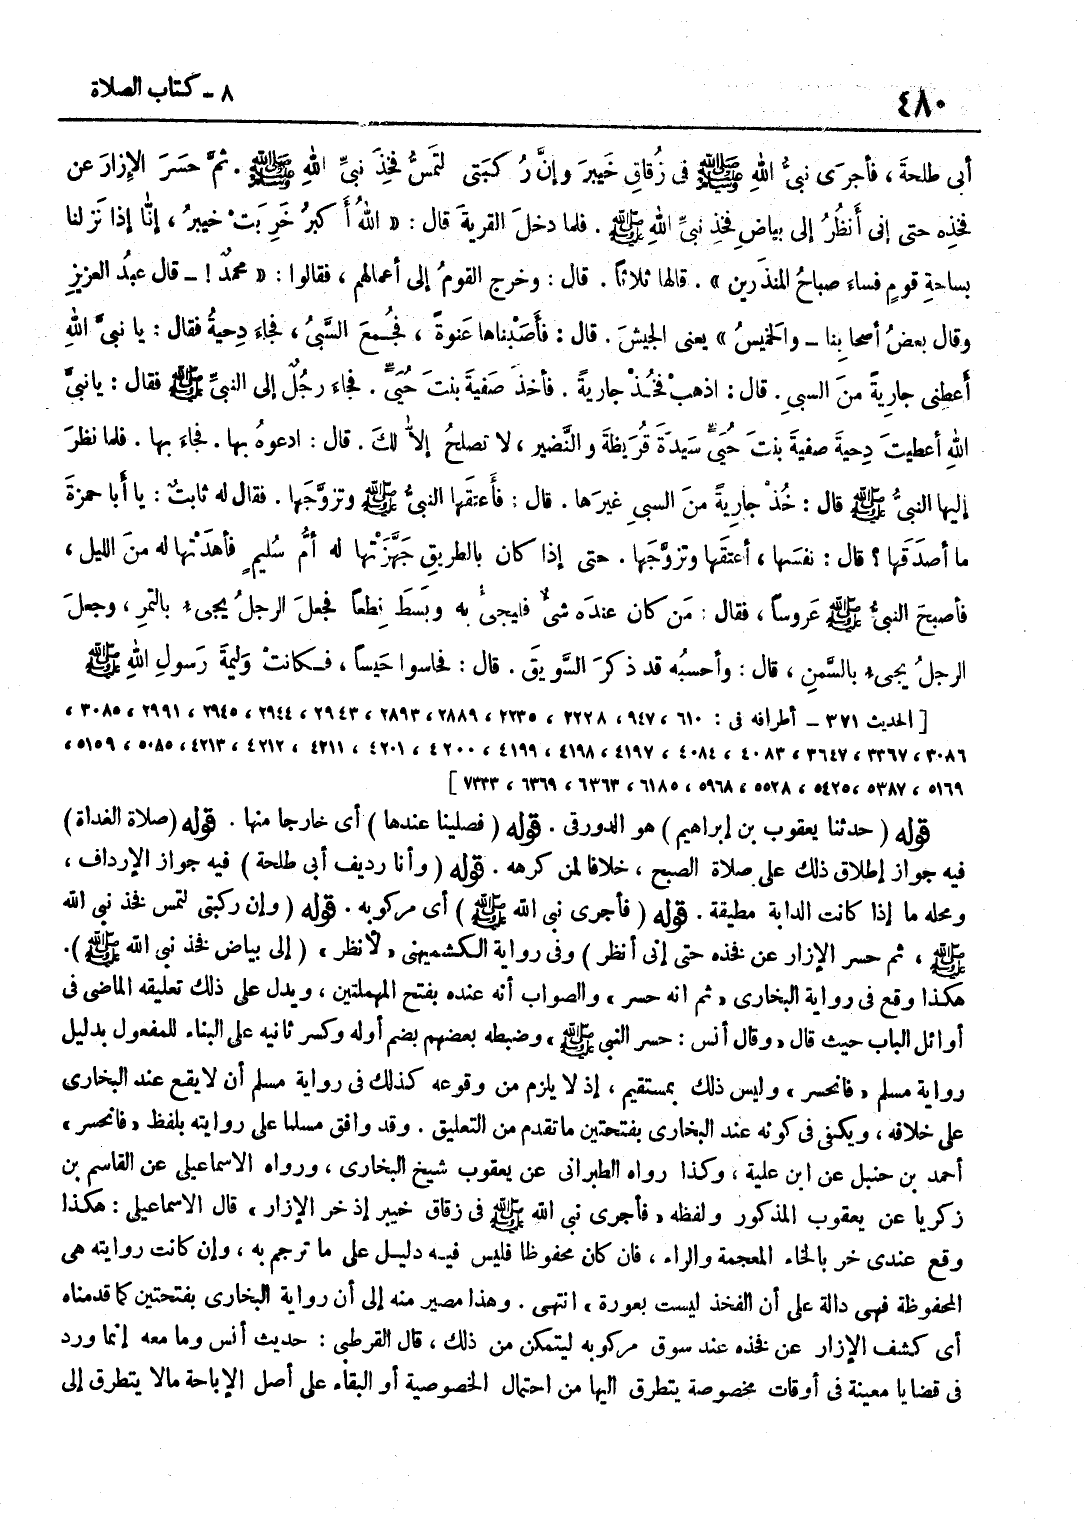 ٤٨٠
٨ ـ كتاب الصلاة
أبى طلحةَ ، فأجرَى نبىُّ اللهِ ﷺ فى زُقاقِ خَيبرَ وإنَّ رُكبَتى لتَمسُّ فَخِذَ نبىِّ اللهِ ﷺ . ثمَّ حَسَرَ الإزارَ عن
فخذِه حتى إنى أنظُرُ إلى بياضِ فخِذِ نبىِّ اللهِ ﷺ . فلما دخلَ القريةَ قال : « اللهُ أكبرُ خَرِبَتْ خيبرُ ، إنَّا إذا نَزلنا
بساحةِ قومٍ فساءَ صباحُ المنذَرين » . قالها ثلاثاً . قال : وخرج القومُ إلى أعمالهِم ، فقالوا : « محمدٌ ! ـ قال عبدُ العزيزِ
وقال بعضُ أصحابِنا ـ والخميسُ » يعنى الجيشَ . قال : فأَصَبْناها عَنوةً ، فجُمعَ السَّبىُ ، فجاءَ دِحيةُ فقال : يا نبىَّ اللهِ
أَعطِنى جاريةً منَ السبىِ . قال : اذهبْ فخُذْ جاريةً . فأخذَ صَفيةَ بنتَ حُيَىٍّ . فجاءَ رجُلٌ إلى النبىِّ ﷺ فقال : يانبىَّ
اللهِ أعطيتَ دِحيةَ صفيةَ بنتَ حُيَىٍّ سَيدَةَ قُرَيظةَ والنَّضير ، لا تصلحُ إلاَّ لكَ . قال : ادعوهُ بها . فجاءَ بها . فلما نظرَ
إليها النبىُّ ﷺ قال : خُذْ جاريةً منَ السبىِ غيرَها . قال : فأَعتقَها النبىُّ ﷺ وتزوَّجَها . فقال له ثابتٌ : يا أبا حمزةَ
ما أصدَقَها ؟ قال : نفسَها ، أعتقَها وتزوَّجَها . حتى إذا كان بالطريقِ جَهَّزَتْها له أمُّ سُليمٍ فأهدَتْها له منَ الليل ،
فأصبحَ النبىُّ ﷺ عَروساً ، فقال : مَن كان عندَه شىءٌ فليجىْء به وبَسَطَ نِطعاً فجعلَ الرجلُ يجىء بالتمرِ ، وجعلَ
الرجلُ يجىء بالسَّمنِ ، قال : وأحسبُه قد ذكرَ السَّويقَ . قال : فحاسوا حَيساً ، فكانتْ وَليمةَ رَسولِ اللهِ ﷺ
[ الحديث ٣٧١ ـ أطرافه فى : ٦١٠ ، ٩٤٧ ، ٢٢٢٨ ، ٢٢٣٥ ، ٢٨٨٩ ، ٢٨٩٣ ، ٢٩٤٣ ، ٢٩٤٤ ، ٢٩٤٥ ، ٢٩٩١ ، ٣٠٨٥ ،
٣٠٨٦ ، ٣٣٦٧ ، ٣٦٤٧ ، ٤٠٨٣ ، ٤٠٨٤ ، ٤١٩٧ ، ٤١٩٨ ، ٤١٩٩ ، ٤٢٠٠ ، ٤٢٠١ ، ٤٢١١ ، ٤٢١٢ ، ٤٢١٣ ، ٥٠٨٥ ، ٥١٥٩ ،
٥١٦٩ ، ٥٣٨٧ ، ٥٤٢٥ ، ٥٥٢٨ ، ٥٩٦٨ ، ٦١٨٥ ، ٦٣٦٣ ، ٦٣٦٩ ، ٧٣٣٣ ]
قوله ( حدثنا يعقوب بن إبراهيم ) هو الدورقى . قوله ( فصلينا عندها ) أى خارجا منها . قوله ( صلاة الغداة )
فيه جواز إطلاق ذلك على صلاة الصبح ، خلافا لمن كرهه . قوله ( وأنا رديف أبى طلحة ) فيه جواز الإرداف ،
ومحله ما إذا كانت الدابة مطيقة . قوله ( فأجرى نبى الله ﷺ ) أى مركوبه . قوله ( وإن ركبتى لتمس فخذ نبى الله
ﷺ ، ثم حسر الإزار عن فخذه حتى إنى أنظر ) وفى رواية الكشميهنى « لأنظر » ( إلى بياض فخذ نبى الله ﷺ ) .
هكذا وقع فى رواية البخارى « ثم انه حسر » والصواب أنه عنده بفتح المهملتين ، ويدل على ذلك تعليقه الماضى فى
أوائل الباب حيث قال « وقال أنس : حسر النبى ﷺ » وضبطه بعضهم بضم أوله وكسر ثانيه على البناء للمفعول بدليل
رواية مسلم « فانحسر » وليس ذلك بمستقيم ، إذ لا يلزم من وقوعه كذلك فى رواية مسلم أن لا يقع عند البخارى
على خلافه ، ويكفى فى كونه عند البخارى بفتحتين ماتقدم من التعليق . وقد وافق مسلما على روايته بلفظ « فانحسر »
أحمد بن حنبل عن ابن علية ، وكذا رواه الطبرانى عن يعقوب شيخ البخارى ، ورواه الاسماعيلى عن القاسم بن
زكريا عن يعقوب المذكور ولفظه « فأجرى نبى الله ﷺ فى زقاق خيبر إذ خر الإزار » قال الاسماعيلى : هكذا
وقع عندى خر بالخاء المعجمة والراء ، فان كان محفوظا فليس فيه دليل على ما ترجم به ، وإن كانت روايته هى
المحفوظة فهى دالة على أن الفخذ ليست بعورة » انتهى . وهذا مصير منه إلى أن رواية البخارى بفتحتين كما قدمناه
أى كشف الإزار عن فخذه عند سوق مركوبه ليتمكن من ذلك ، قال القرطبى : حديث أنس وما معه إنما ورد
فى قضايا معينة فى أوقات مخصوصة يتطرق اليها من احتمال الخصوصية أو البقاء على أصل الإباحة مالا يتطرق إلى